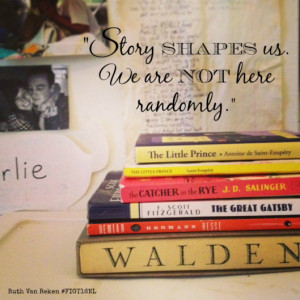 "Story SHAPES us.
We are NOT here
randomly."
rlie
The Little Prince • Antoine de Saint-Exupéry
THE LITTLE PRINCE Saint-Exupéry
the CATCHER in the RYE J. D. SALINGER
F. SCOTT
FITZGERALD THE GREAT GATSBY
DEMIAN HERMANN HESSE
WALDEN
Ruth Van Reken #FIGT16NL